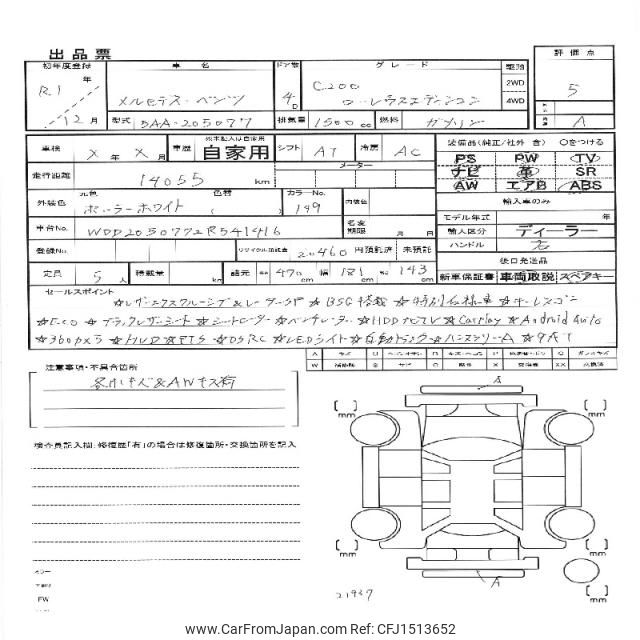 出品票
初年度登録
R.1 年
12月
車名
メルセデス・ベンツ
ドア数
4D
グレード
C200
ローレウスエディション
駆動
2WD
4WD
評価点
5
A
型式 5AA-205077 排気量 1500cc 燃料 ガソリン
車検 X年X月 車歴 自家用 シフト AT 冷房 AC
走行距離 14055 km
メーター
外装色 元色 ポーラーホワイト 色替 カラーNo. 149 内装色
車台No. WDD2050772R541416 名変期限 月 日
登録No. リサイクル預託金 20460 円預託済 未預託
定員 5人 積載量 kg 諸元 長さ 470 cm 幅 181 cm 高さ 143 cm
装備品(純正/社外 含) ○をつける
PS PW TV
ナビ 革 SR
AW エアB ABS
輸入車のみ
モデル年式 年
輸入区分 ディーラー
ハンドル 右
後日発送品
新車保証書 車両取説 スペアキー
セールスポイント
☆レザーエクスクルーシブ&レーダーSP ☆BSG搭載 ☆特別仕様車 ☆キーレスゴー
☆Eco ☆ブラックレザーシート ☆シートヒーター ☆ベンチレーター ☆HDDナビTV ☆Carplay ☆Android Auto
☆360カメラ ☆HUD ☆ETS ☆DSRC ☆LEDライト ☆自動トランク ☆ハンズフリーA ☆9AT
注意事項・不具合箇所
各小キズ&AWキズ有
検査員記入欄:修復歴「有」の場合は修復箇所・交換箇所を記入
A
A
[ ] mm
[ ] mm
[ ] mm
[ ] mm
21937
FW
www.CarFromJapan.com Ref:CFJ1513652